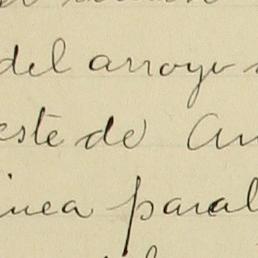 del arroyo
este de
inea paral